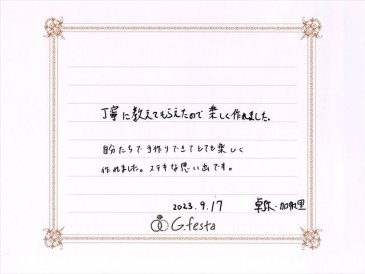 丁寧に教えてもらえたので楽しく作れました。
自分たちで手作りできてとても楽しく
作れました。ステキな思い出です。
2023.9.17
G.festa